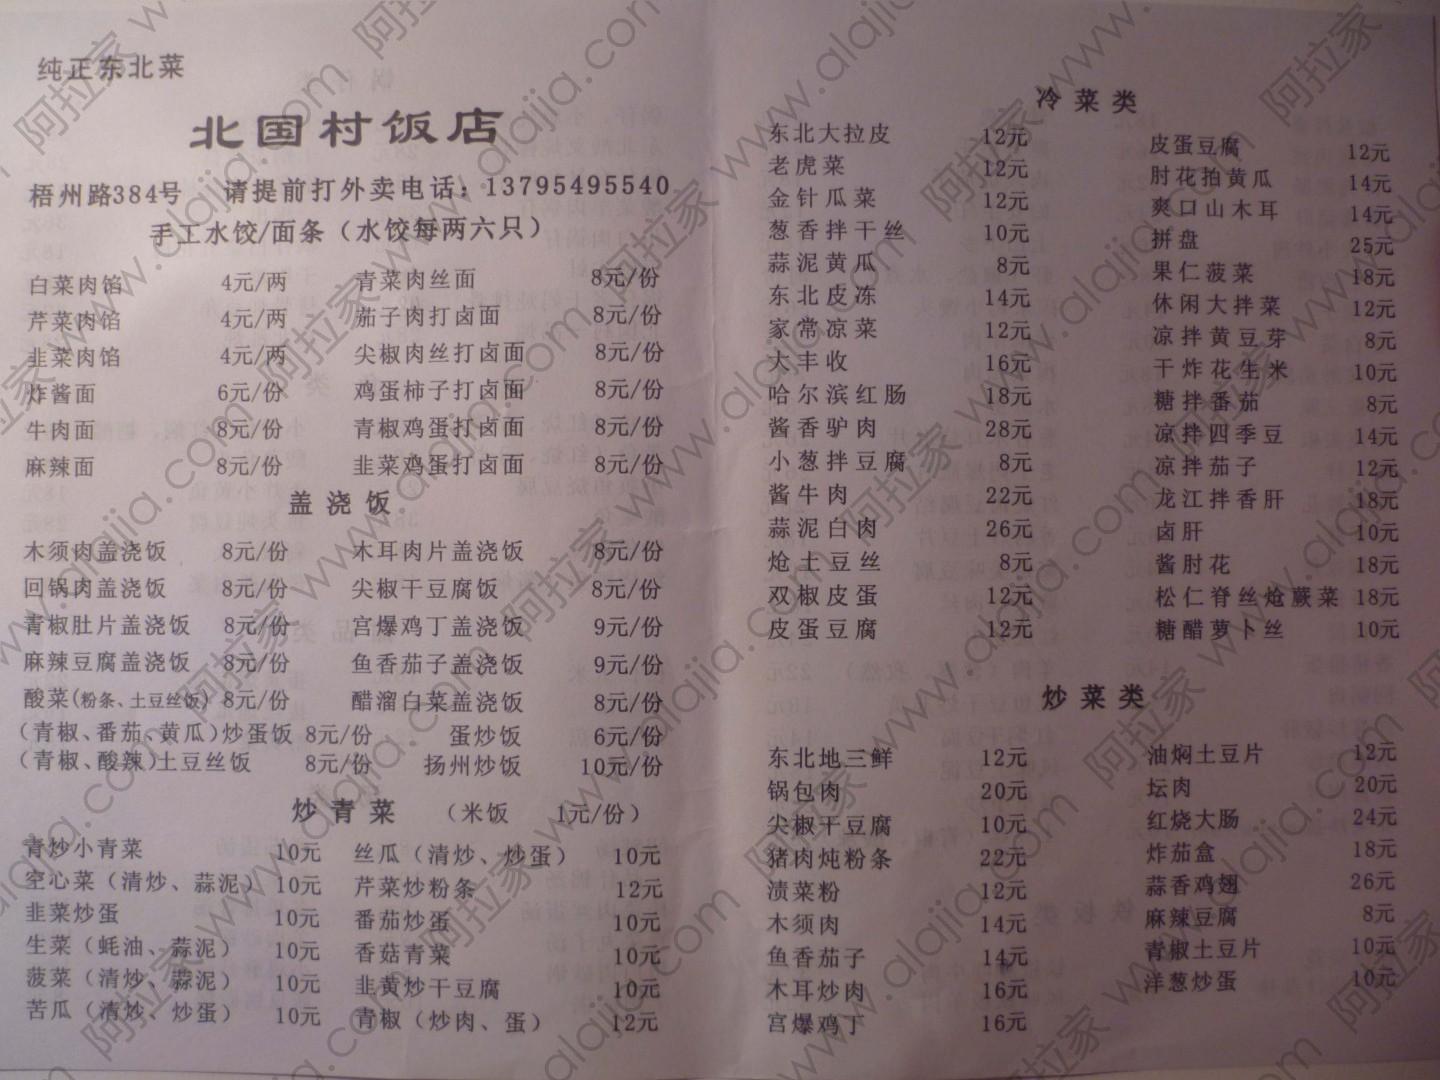 纯正东北菜
北国村饭店
梧州路384号 请提前打外卖电话：13795495540
手工水饺/面条（水饺每两六只）
白菜肉馅 4元/两 青菜肉丝面 8元/份
芹菜肉馅 4元/两 茄子肉打卤面 8元/份
韭菜肉馅 4元/两 尖椒肉丝打卤面 8元/份
炸酱面 6元/份 鸡蛋柿子打卤面 8元/份
牛肉面 8元/份 青椒鸡蛋打卤面 8元/份
麻辣面 8元/份 韭菜鸡蛋打卤面 8元/份
盖浇饭
木须肉盖浇饭 8元/份 木耳肉片盖浇饭 8元/份
回锅肉盖浇饭 8元/份 尖椒干豆腐饭 8元/份
青椒肚片盖浇饭 8元/份 宫爆鸡丁盖浇饭 9元/份
麻辣豆腐盖浇饭 8元/份 鱼香茄子盖浇饭 9元/份
酸菜(粉条、土豆丝饭) 8元/份 醋溜白菜盖浇饭 8元/份
（青椒、番茄、黄瓜）炒蛋饭 8元/份 蛋炒饭 6元/份
（青椒、酸辣）土豆丝饭 8元/份 扬州炒饭 10元/份
炒青菜 （米饭 1元/份）
青炒小青菜 10元 丝瓜（清炒、炒蛋） 10元
空心菜（清炒、蒜泥） 10元 芹菜炒粉条 12元
韭菜炒蛋 10元 番茄炒蛋 10元
生菜（蚝油、蒜泥） 10元 香菇青菜 10元
菠菜（清炒、蒜泥） 10元 韭黄炒干豆腐 10元
苦瓜（清炒、炒蛋） 10元 青椒（炒肉、蛋） 12元
冷菜类
东北大拉皮 12元 皮蛋豆腐 12元
老虎菜 12元 肘花拍黄瓜 14元
金针瓜菜 12元 爽口山木耳 14元
葱香拌干丝 10元 拼盘 25元
蒜泥黄瓜 8元 果仁菠菜 18元
东北皮冻 14元 休闲大拌菜 12元
家常凉菜 12元 凉拌黄豆芽 8元
大丰收 16元 干炸花生米 10元
哈尔滨红肠 18元 糖拌番茄 8元
酱香驴肉 28元 凉拌四季豆 14元
小葱拌豆腐 8元 凉拌茄子 12元
酱牛肉 22元 龙江拌香肝 18元
蒜泥白肉 26元 卤肝 10元
炝土豆丝 8元 酱肘花 18元
双椒皮蛋 12元 松仁脊丝炝蕨菜 18元
皮蛋豆腐 12元 糖醋萝卜丝 10元
炒菜类
东北地三鲜 12元 油焖土豆片 12元
锅包肉 20元 坛肉 20元
尖椒干豆腐 10元 红烧大肠 24元
猪肉炖粉条 22元 炸茄盒 18元
渍菜粉 12元 蒜香鸡翅 26元
木须肉 14元 麻辣豆腐 8元
鱼香茄子 14元 青椒土豆片 10元
木耳炒肉 16元 洋葱炒蛋 10元
宫爆鸡丁 16元
阿拉家 www.alajia.com